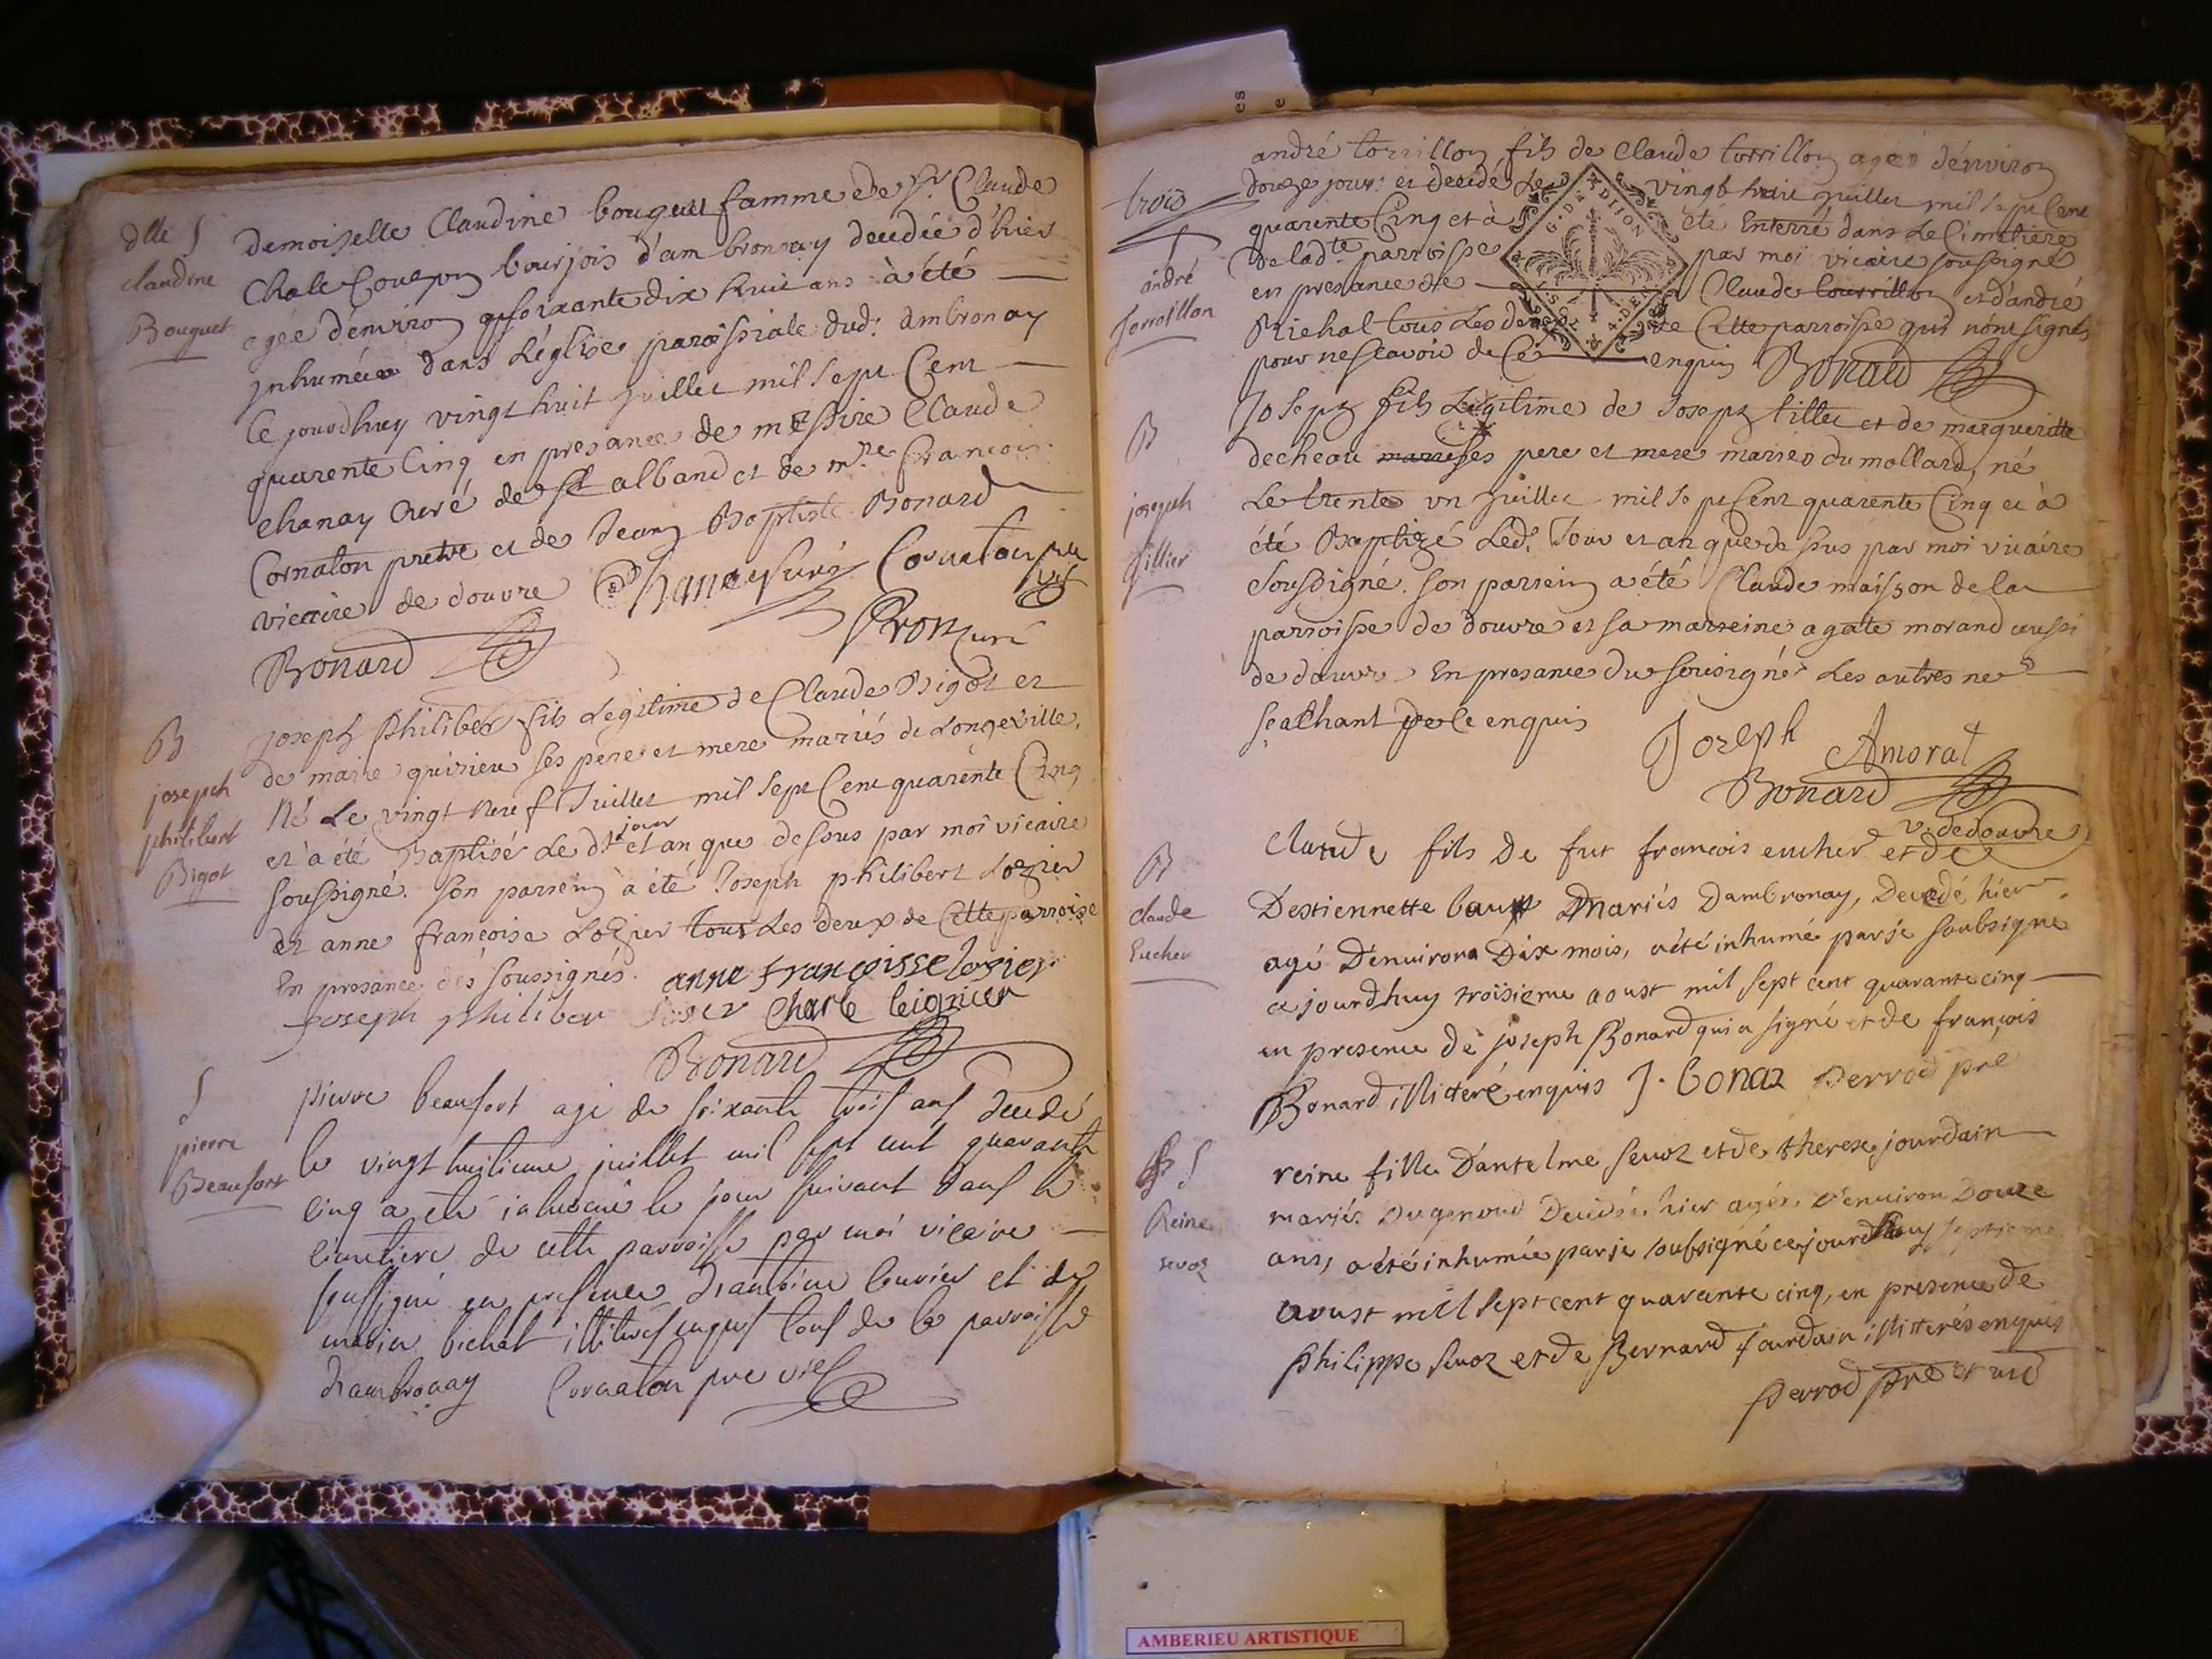 dlle S
claudine
Bouquet
Demoiselle Claudine bouquet famme de sr. Claude
Chale bourjois d'ambronay decedée d'hier
agée d'environ soixante dix huit ans à été
inhumée dans L'église paroissiale dud: ambronay
Ce jourdhuy vingt huit juillet mil sept Cent
quarente Cinq en presance de messire Claude
chanay Curé de st alband et de mre. francois
Cornaton pretre et de Jean Baptiste Bonard
vicaire de douvre Chanay Curé Cornaton pre
vic
Bonard curé
B
joseph
philibert
Bigot
Joseph Philiber fils Legitime de Claude Bigot et
de marie quirieu ses pere et mere mariés de Longeville,
Né Le vingt neuf Juillet mil sept Cent quarente Cinq
et a été Baptisé Le dt jour et an que dessus par moi vicaire
soussigné. son parrein a été Joseph philibert Lozier
et anne francoise Lozier tous Les deux de Cette parroise
En presance des soussignés. anne françoisse losier
Joseph philiber losier Charle
Bonard
S
pierre
Beaufort
pierre beaufort agé de soixante trois ans decedé
le vingt huitieme juillet mil sept cent quarante
cinq a eté inhumé le jour suivant dans le
cimetiere de cette parroisse par moi vicaire
soussigné en presence d'antoine et de
bichat illiterés enquis tous de la parroisse
d'ambronay Cornaton pre vic
trois
S
andré
Torrillon
andré torrillon fils de Claude torrillon agée d'environ
douze jours et decedé Le vingt huit juillet mil sept Cent
quarente Cinq et à été Enterré dans Le Cimetiere
De ladte parroisse par moi vicaire soussigné
en presance de Claude tourrillon et d'andré
Michal tous Les deux de Cette parroisse qui n'ont signés
pour ne scavoir de Ce enquis Bonard
G. DE DIJON
4. DEN
B
joseph
tillier
Joseph fils Legitime de Joseph tillet et de margueritte
decheau ses pere et mere mariés du mollard, né
Le trente un juillet mil sept Cent quarente Cinq et à
été Baptizé Led. Jour et an que dessus par moi vicaire
soussigné. son parrein a été Claude maisson de la
parroisse de douvre et sa marreine agate morand aussi
de douvre En presance du sousigné Les autres ne
scachant de Ce enquis
Joseph Amorat
Bonard
v. de douvre
B
claude
Eucher
Claude fils de fut francois eucher et de
Destiennette baux Mariés Dambronay, Decedé hier
agé D'environ Dix mois, a été inhumé par je soubsigné
ce jourdhuy troisieme aoust mil sept cent quarante cinq
en presence de joseph Bonard qui a signé et de françois
Bonard illitteré enquis J. bonaz perrod pre
S
Reine
sevoz
reine fille D'antelme sevoz et de therese jourdain
mariés Dugenoud Decedée hier agée d'environ Douze
ans, a été inhumée par je soubsigné ce jourdhuy septieme
aoust mil sept cent quarante cinq, en presence de
philippe sevoz et de Bernard jourdain illitterés enquis
perrod pre et vic
es
e
AMBERIEU ARTISTIQUE